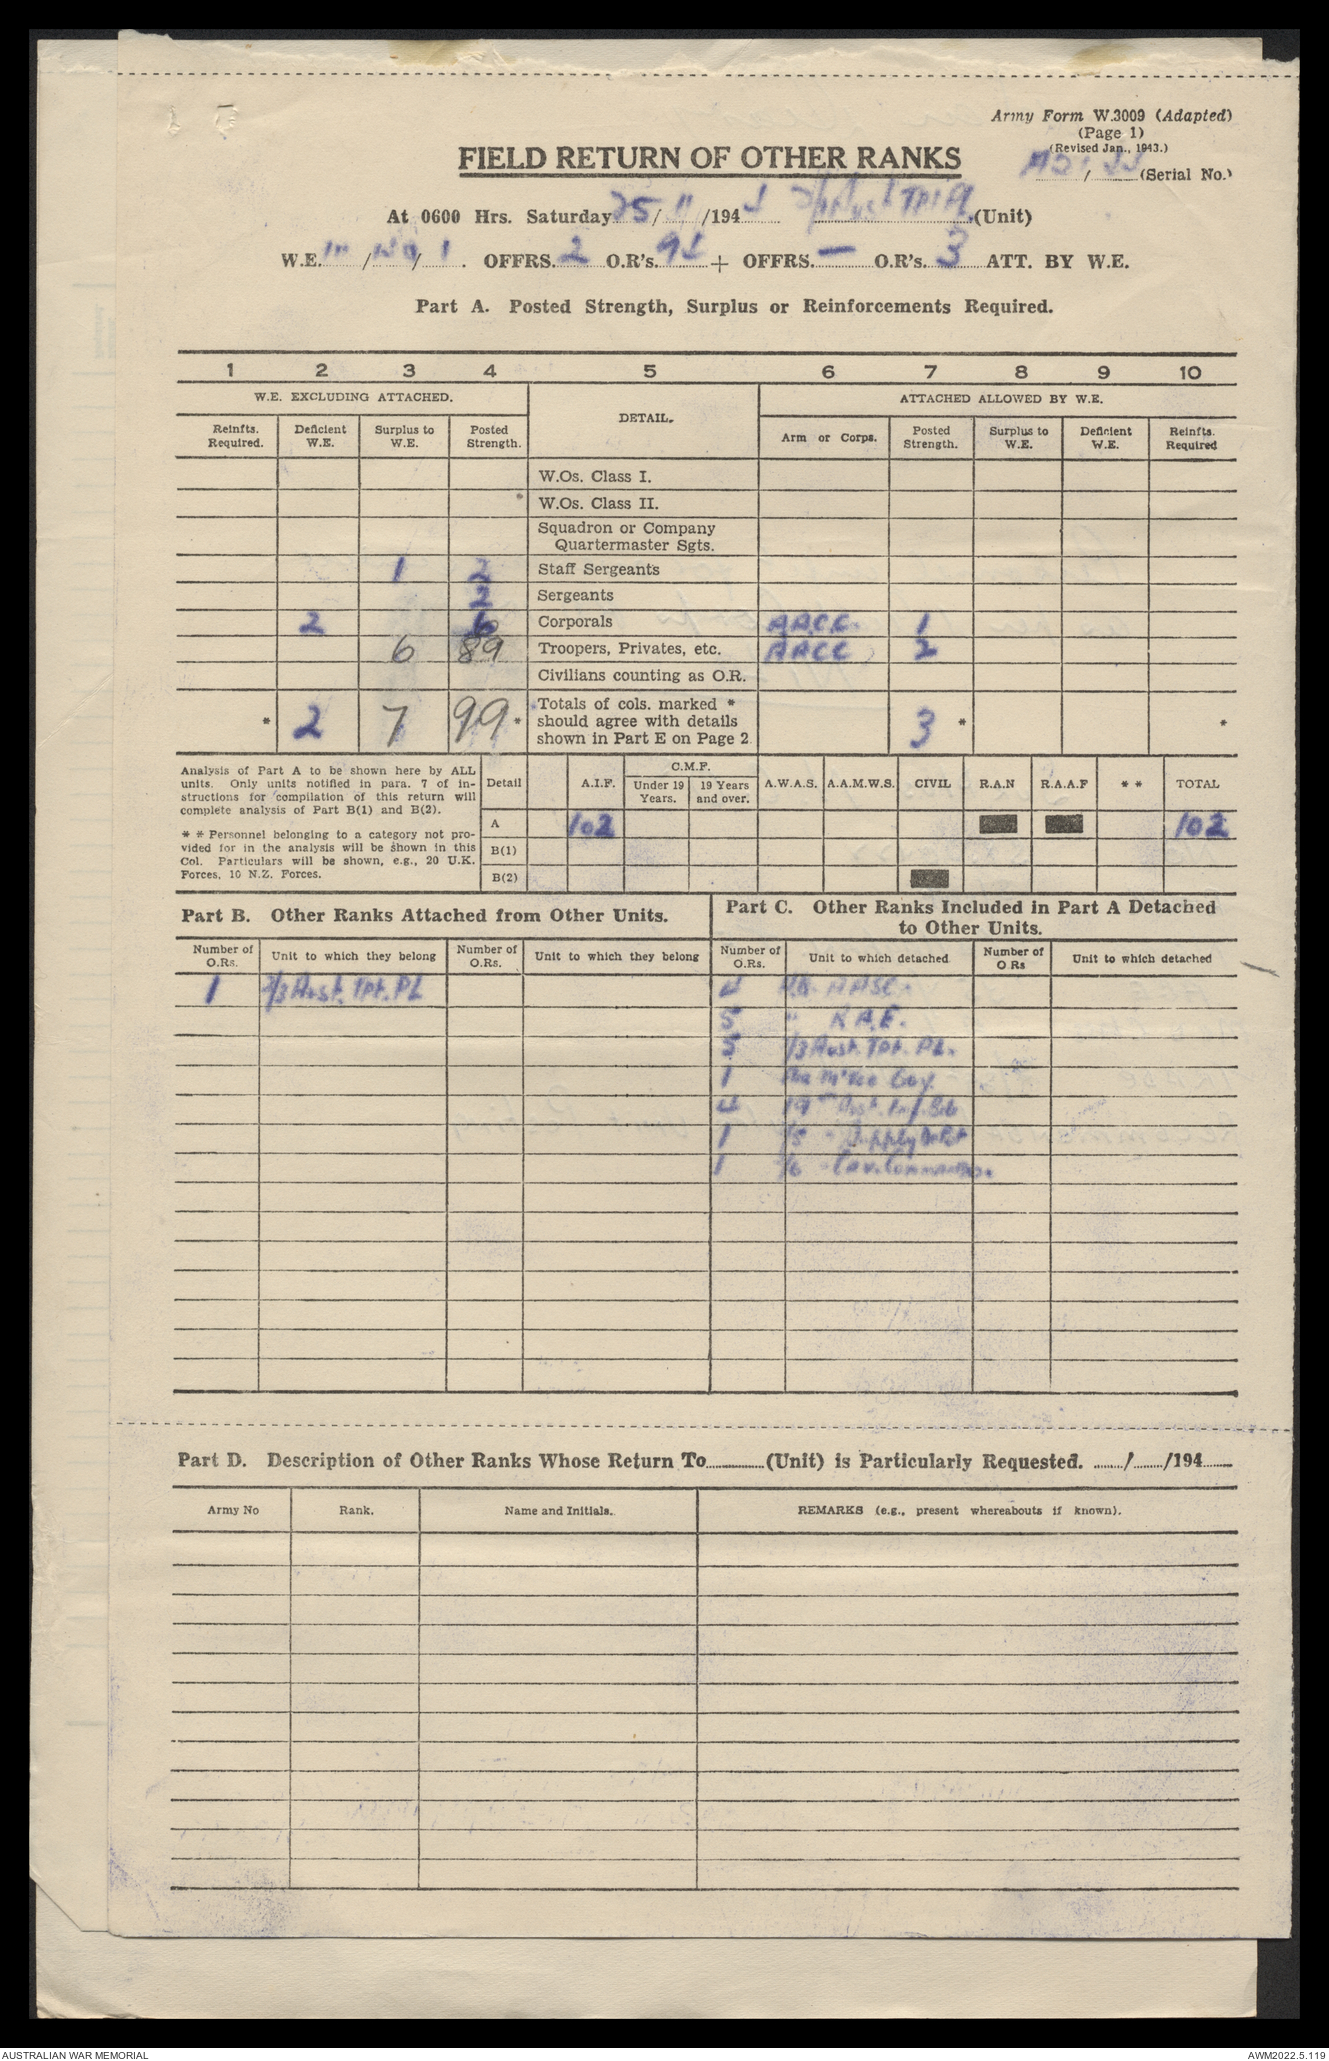 Army Form W.3009 (Adapted)
(Page 1)
(Revised Jan., 1943.)
FIELD RETURN OF OTHER RANKS
/ (Serial No.)
At 0600 Hrs. Saturday 25/11/194 (Unit)
W.E. / / 1. OFFRS. 2 O.R's. + OFFRS. — O.R's. 3 ATT. BY W.E.
Part A. Posted Strength, Surplus or Reinforcements Required.
1 2 3 4 5 6 7 8 9 10
W.E. EXCLUDING ATTACHED. DETAIL. ATTACHED ALLOWED BY W.E.
Reinfts. Required. Deficient W.E. Surplus to W.E. Posted Strength. Arm or Corps. Posted Strength. Surplus to W.E. Deficient W.E. Reinfts. Required
W.Os. Class I.
* W.Os. Class II.
Squadron or Company
Quartermaster Sgts.
1 2 Staff Sergeants
2 Sergeants
2 6 Corporals A.A.C.C. 1
6 89 Troopers, Privates, etc. A.A.C.C 2
Civilians counting as O.R.
* 2 7 99 * Totals of cols. marked * should agree with details shown in Part E on Page 2. 3 * *
Analysis of Part A to be shown here by ALL
units. Only units notified in para. 7 of in-
structions for compilation of this return will
complete analysis of Part B(1) and B(2).
* * Personnel belonging to a category not pro-
vided for in the analysis will be shown in this
Col. Particulars will be shown, e.g., 20 U.K.
Forces, 10 N.Z. Forces.
Detail A.I.F. C.M.F. Under 19 Years. 19 Years and over. A.W.A.S. A.A.M.W.S. CIVIL R.A.N R.A.A.F * * TOTAL
A 102 102
B(1)
B(2)
Part B. Other Ranks Attached from Other Units.
Part C. Other Ranks Included in Part A Detached
to Other Units.
Number of O.Rs. Unit to which they belong Number of O.Rs. Unit to which they belong Number of O.Rs. Unit to which detached Number of O Rs Unit to which detached
1 2/3 Aust. Tpt. PL 4 AASC.
5 " R.A.E.
5 /3 Aust. Tpt. PL.
1 Coy.
4 19th Aust. Inf. Bde
1 /5 " Supply Depot
1 /6 " Cav. Commando.
Part D. Description of Other Ranks Whose Return To (Unit) is Particularly Requested. / /194
Army No Rank. Name and Initials. REMARKS (e.g., present whereabouts if known).
AUSTRALIAN WAR MEMORIAL AWM2022.5.119